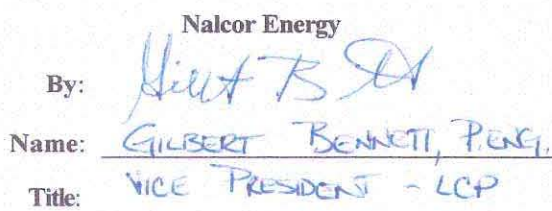 Nalcor Energy
By: Gilbert Bennett
Name: GILBERT BENNETT, P.ENG.
Title: VICE PRESIDENT - LCP